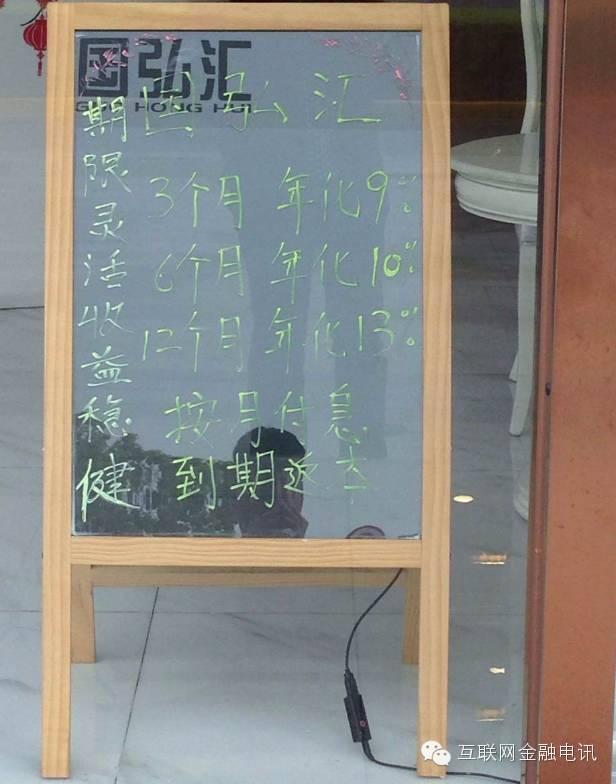 国弘汇
GUO HONG HUI
国弘汇
期限灵活收益稳健
3个月 年化9%
6个月 年化10%
12个月 年化13%
按月付息
到期返本
互联网金融电讯